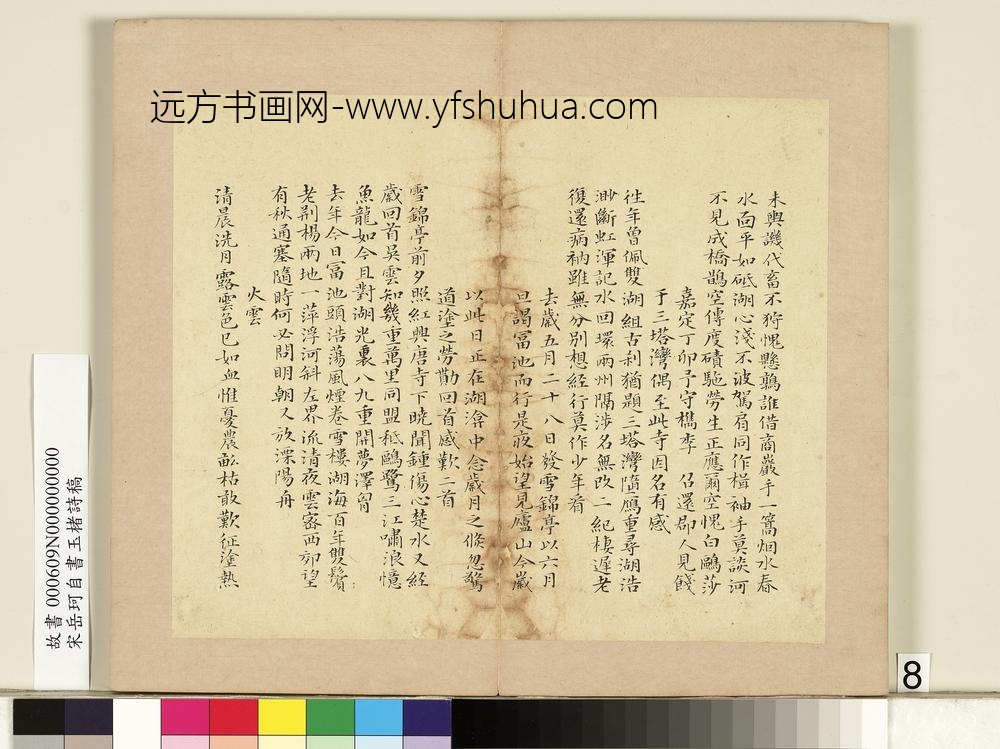 远方书画网-www.yfshuhua.com
未輿譏代畜不狩愧懸鶉誰借商嚴手一篙烟水春
水面平如砥湖心淺不波駕肩同作楫袖手莫談河
不見成橋鵲空傳度磧駞勞生正應爾空愧白鷗莎
嘉定丁卯予守檇李 召還郡人見餞
于三塔灣偶至此寺因名有感
往年曾佩雙湖組古刹猶題三塔灣隨鴈重尋湖浩
渺斷虹渾記水回環兩州隔涉名無改二紀棲遲老
復還病衲雖無分別想經行莫作少年看
去歲五月二十八日發雪錦亭以六月
旦謁富池而行是夜始望見廬山今歲
以此日正在湖滸中念歲月之倏忽驚
道塗之勞勩回首感歎二首
雪錦亭前夕照紅興唐寺下曉聞鍾傷心楚水又經
歲回首吳雲知幾重萬里同盟秪鷗鷺三江嘯浪憶
魚龍如今且對湖光裏八九重開夢澤胷
去年今日冨池頭浩蕩風煙卷雪樓湖海百年雙鬢
老荆楊兩地一萍浮河斜左界流清夜雲密西郊望
有秋通塞隨時何必問明朝又放溧陽舟
火雲
清晨洗月露雲色已如血惟憂農畝枯敢歎征塗熱
故書 000609N000000000
宋岳珂自書玉楮詩稿
8